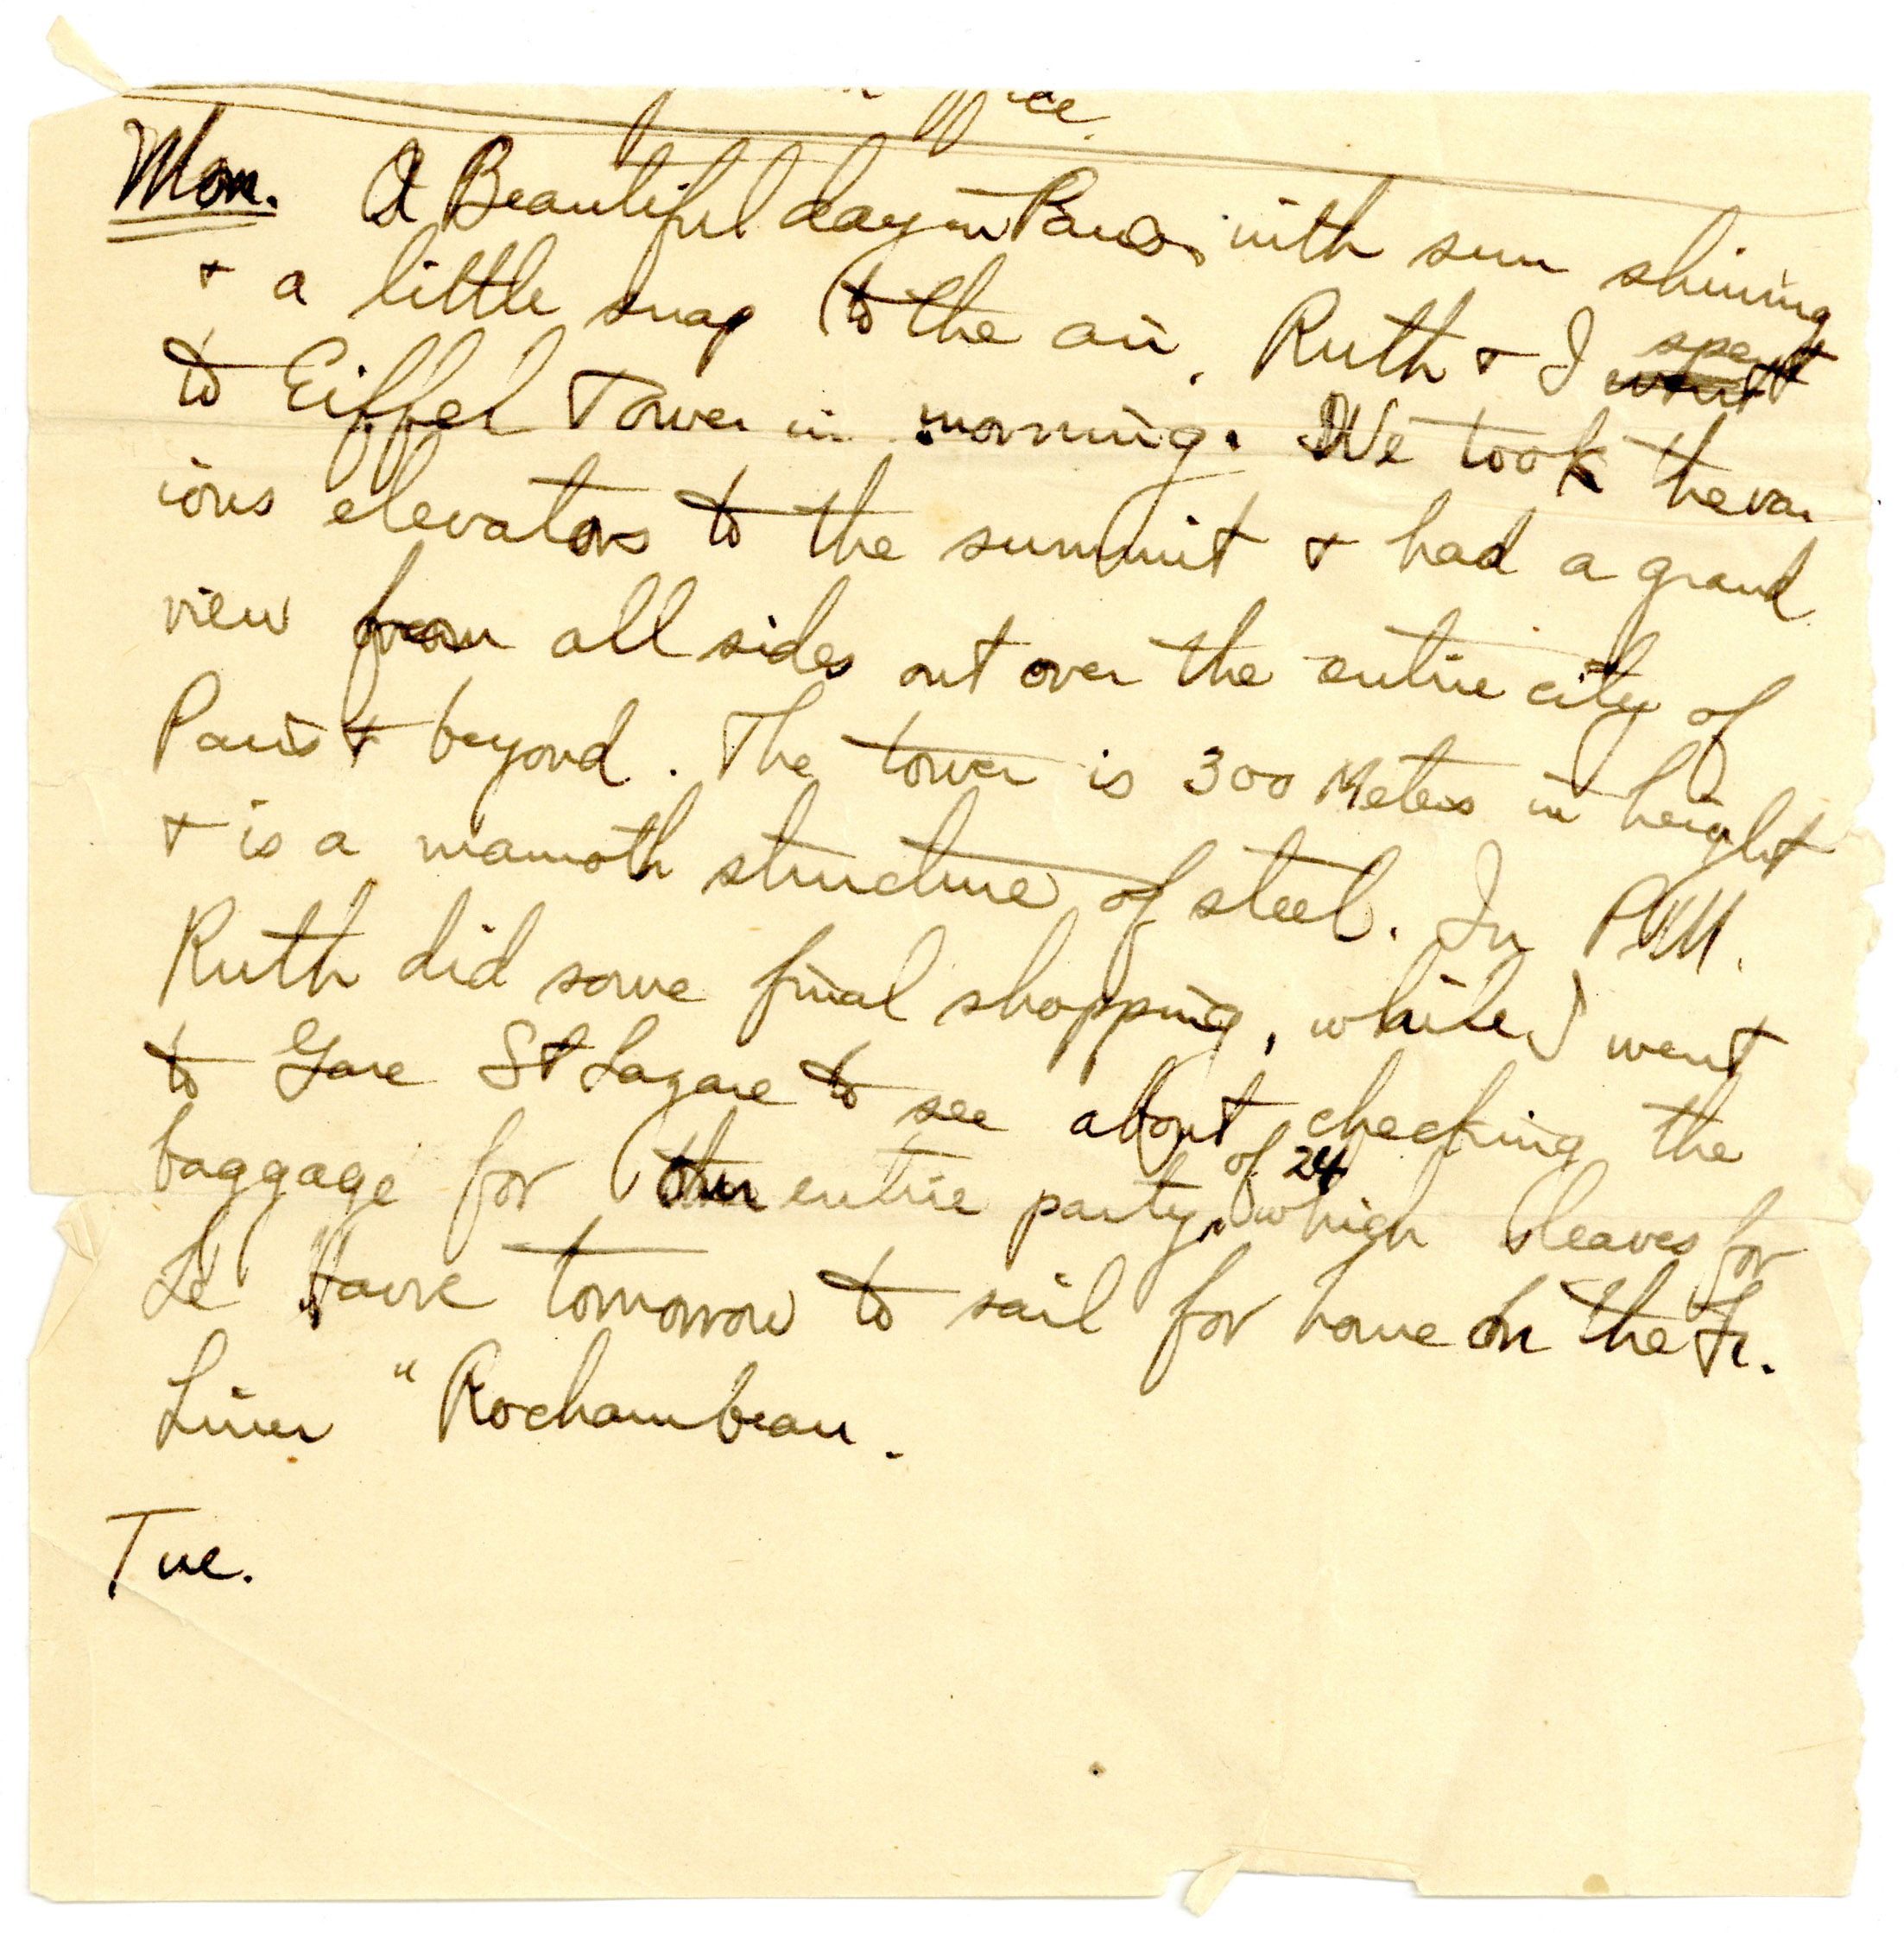 Mon. A Beautiful day in Paris, with sun shining
+ a little snap to the air. Ruth + I spent
to Eiffel Tower in morning. We took the var
ious elevators to the summit + had a grand
view from all sides out over the entire city of
Paris + beyond. The tower is 300 Meters in height
+ is a mamoth structure of steel. In P.M.
Ruth did some final shopping, while I went
to Gare St Lazare to see about checking the
of 24
baggage for our entire party, which leaves for
Le Havre tomorrow to sail for home on the Fr.
Liner "Rochambeau.
Tue.